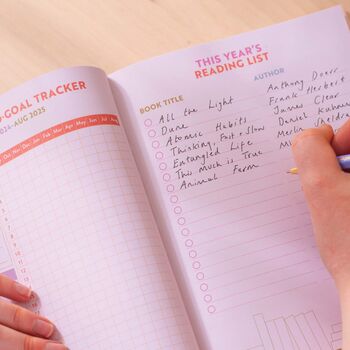 -GOAL TRACKER
2024-AUG 2025
Oct Nov Dec Jan Feb Mar Apr May Jun Jul Aug
THIS YEAR'S
READING LIST
BOOK TITLE
AUTHOR
All the Light
Anthony Doerr
Dune
Frank Herbert
Atomic Habits
James Clear
Thinking, Fast + Slow
Daniel
Entangled Life
Merlin Sheldra
This Much is True
Animal Farm